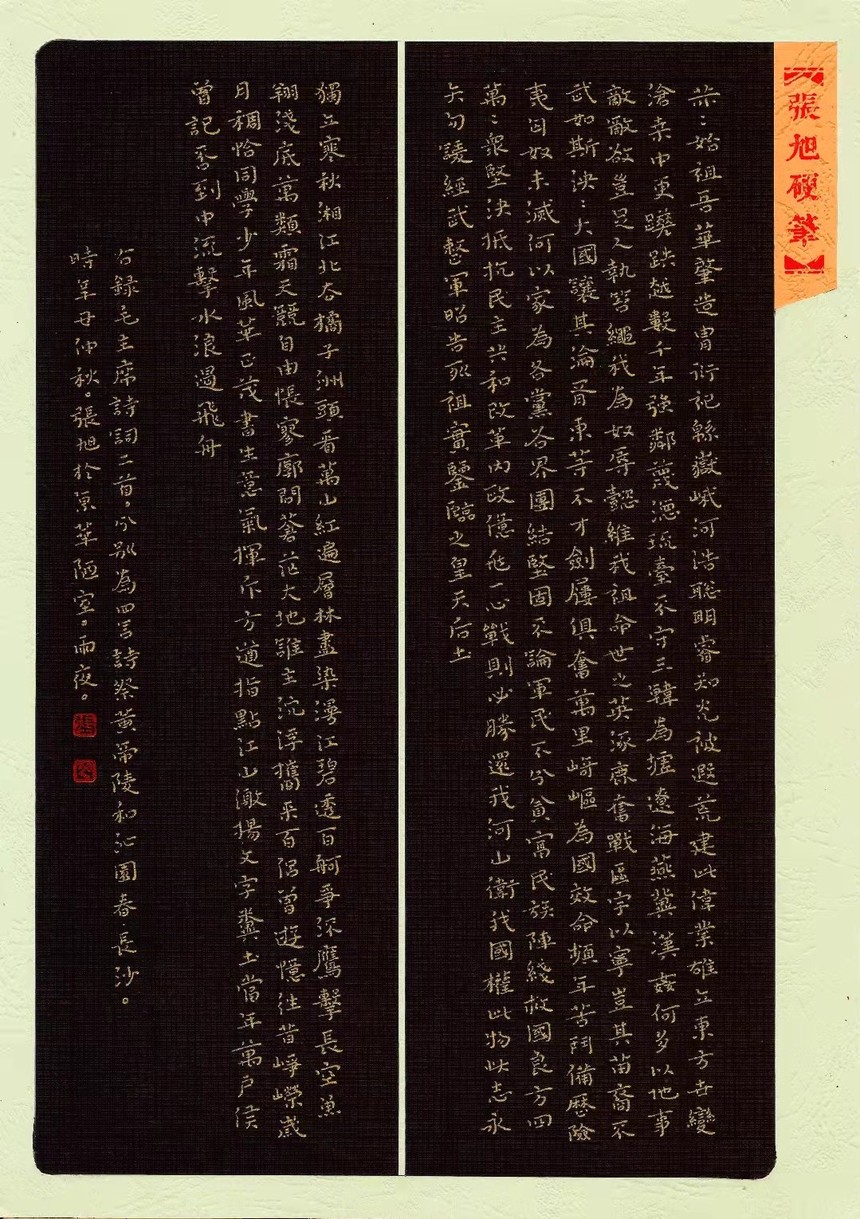 【張旭硬筆】
赫:始祖吾華肇造冑衍祀綿嶽峨河浩聰明睿知光被遐荒建此偉業雄立東方世變
滄桑中更蹉跌越數千年強鄰蔑德琉臺不守三韓為墟遼海燕冀漢奸何多以地事
敵敵欲豈足人執笞繩我為奴辱懿維我祖命世之英涿鹿奮戰區宇以寧豈其苗裔不
武如斯泱:大國讓其淪胥東等不才劍屨俱奮萬里崎嶇為國效命頻年苦鬥備歷險
夷匈奴未滅何以家為各黨各界團結堅固不論軍民不分貧富民族陣綫救國良方四
萬:眾堅決抵抗民主共和改革內政億兆一心戰則必勝還我河山衛我國權此物此志永
矢勿諼經武整軍昭告列祖實鑒臨之皇天后土
獨立寒秋湘江北去橘子洲頭看萬山紅遍層林盡染漫江碧透百舸爭流鷹擊長空魚
翔淺底萬類霜天競自由悵寥廓問蒼茫大地誰主沉浮攜來百侶曾遊憶往昔崢嶸歲
月稠恰同學少年風華正茂書生意氣揮斥方遒指點江山激揚文字糞土當年萬戶侯
曾記否到中流擊水浪遏飛舟
右錄毛主席詩詞二首，分別為四言詩祭黃帝陵和沁園春長沙。
時辛丑仲秋。張旭於京華陋室。雨夜。